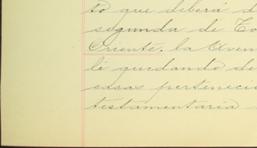 to que deberá d
segunda de Co
Oriente, la Aven
le quedando de
casas pertenecie
testamentaria